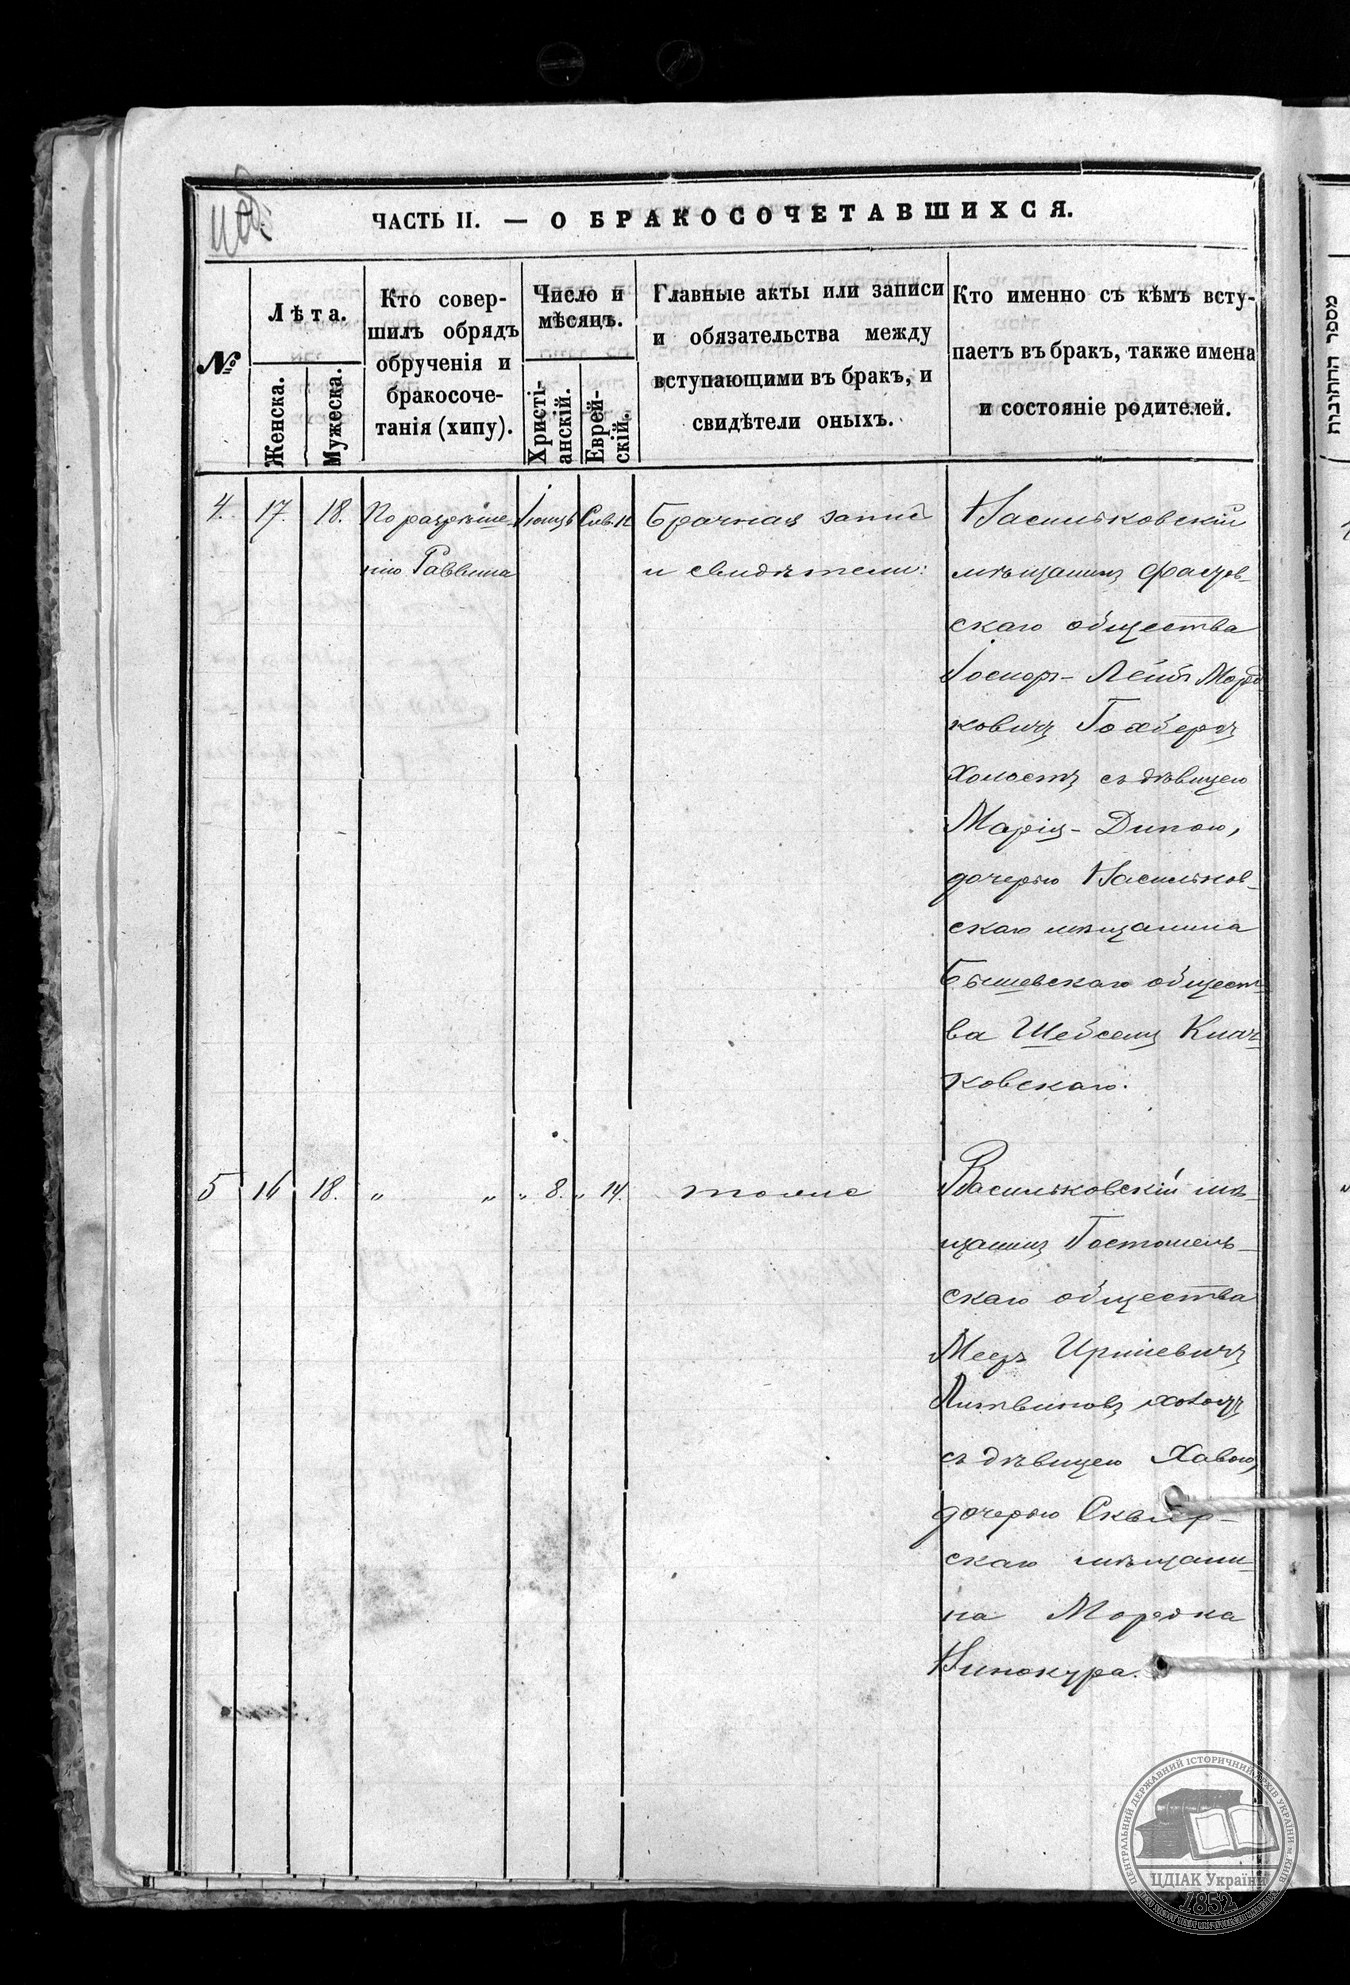 ЧАСТЬ II. — О БРАКОСОЧЕТАВШИХСЯ.
№
Лѣта.
Женска.
Мужеска.
Кто совер-
шилъ обрядъ
обрученія и
бракосоче-
танія (хипу).
Число и
мѣсяцъ.
Христі-
анскій.
Еврей-
скій.
Главные акты или записи
и обязательства между
вступающими въ бракъ, и
свидѣтели оныхъ.
Кто именно съ кѣмъ всту-
паетъ въ бракъ, также имена
и состояніе родителей.
4. 17. 18. По разрѣше-
нію Раввина
Брачная запись
и свидѣтели:
Васильковскій
мѣщанинъ Фастов-
скаго общества
Іосифъ-Лейб Мор
ковичъ Гохбергъ
холостъ съ дѣвицею
Марія-Диною,
дочерью Васильков-
скаго мѣщанина
Бышевскаго общест-
ва Шебселя
ковскаго.
5 16 18. „ „ „ 8. „ 14. тоже
Васильковскій мѣ-
щанинъ Гостомель-
скаго общества
Мееръ Иршевичъ
Литвиновъ холостъ
съ дѣвицею Хавою,
дочерью Сквир-
скаго мѣщани-
на Мордка
Винокура.
מספר החתונות
ЦЕНТРАЛЬНИЙ ДЕРЖАВНИЙ ІСТОРИЧНИЙ АРХІВ УКРАЇНИ м. КИЇВ
ЦДІАК України
1852